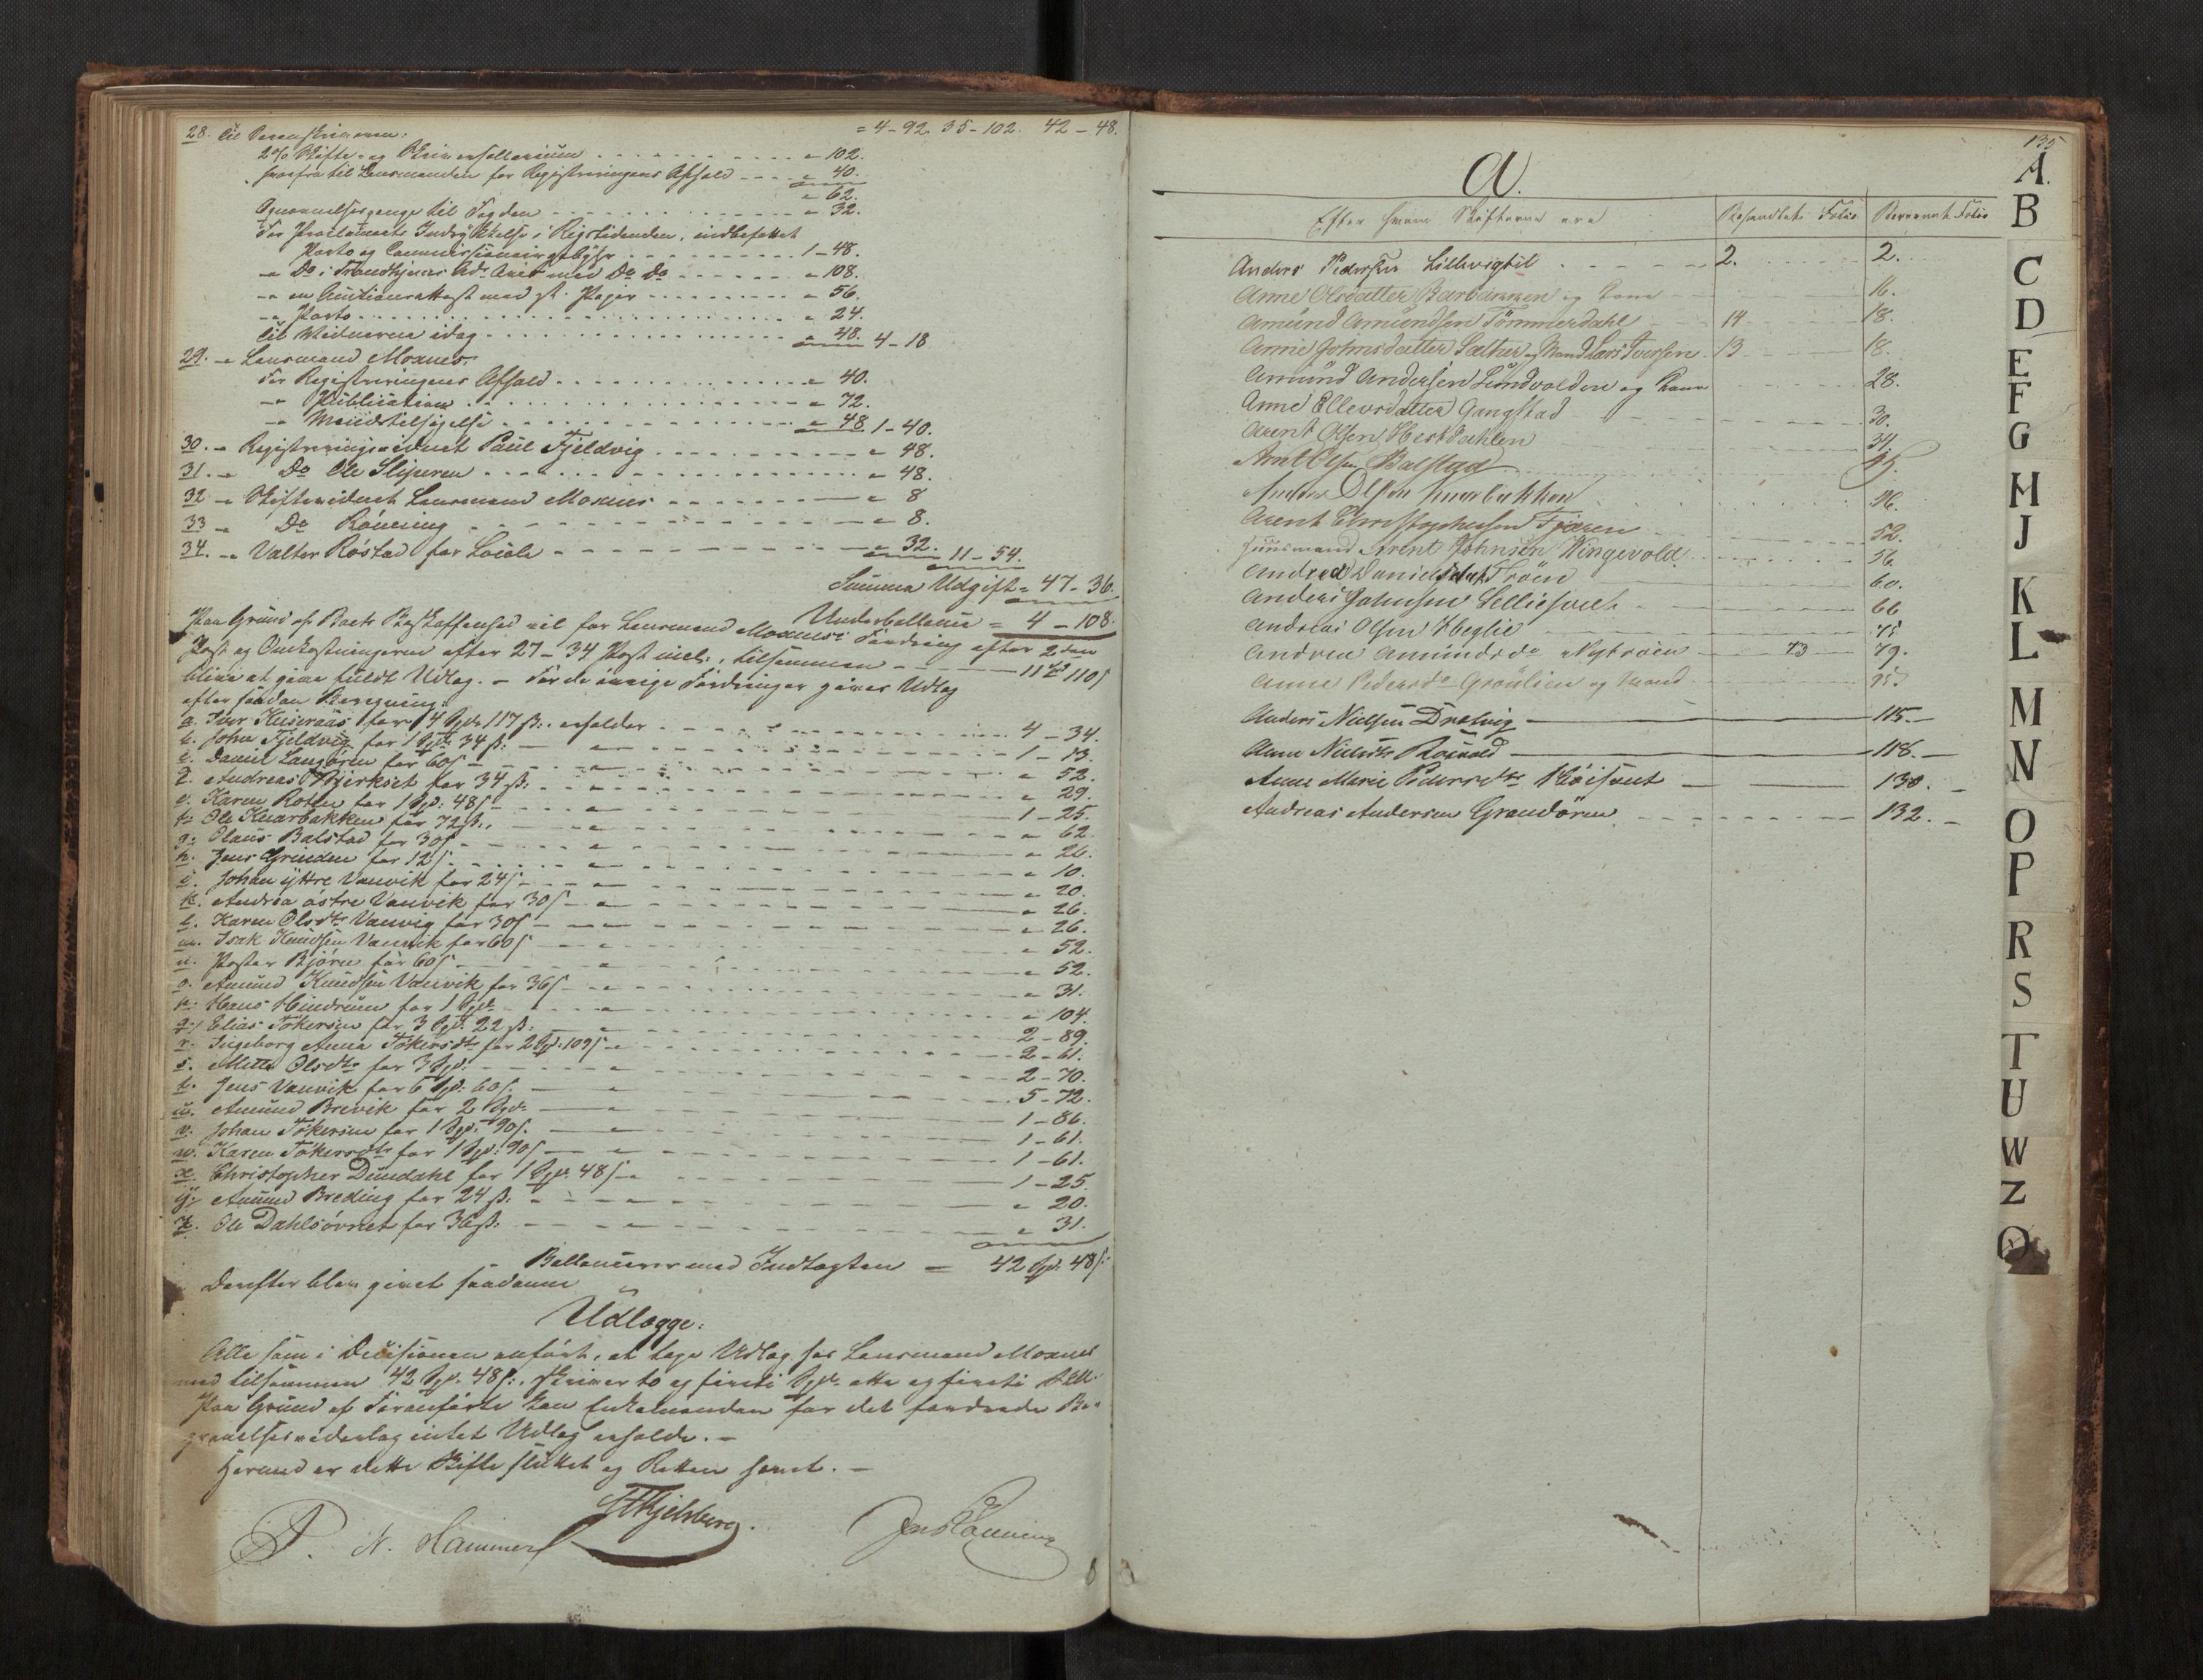 28. Til Sorenskriveren: = 4-92. 35-102. 42-48.
2% Skifte- og Skriversallarium - 102.
herfra til Lensmanden for Registreringens Afhold - 40.
- 62.
Til Fogden - 32.
For Proclamaets Indrykkelse i Rigstidenden, indbefattet
Porto og Commissionairgebyhr 1-48.
- Do i Trondhjems Adr. Avis med Do Do - 108.
- en Auctionsattest med st. Papir - 56.
- Porto - 24.
Til Vidnerne idag - 48. 4-18
29. - Lensmand Moxnes:
For Registreringens Afhold - 40.
- Publication - 72.
- - 48. 1-40.
30. - Registreringsvidnet Paul Fjeldvig - 48.
31. - Do Ole Sliperen - 48.
32 - Skiftevidnet Lensmand Moxnes - 8
33 - Do Rönning - 8.
34. - Valter Röstad for Locale - 32. 11-54.
Summa Udgift = 47-36.
Underballance = 4-108.
Paa Grund af Boets Beskaffenhed vil for Lensmand Moxnes's Fordring efter 2den
Post og Omkostningerne efter 27-34 Post incl., tilsammen 11 110
blive at give fuldt Udlag. - For de övrige Fordringer gives Udlag
efter saadan Beregning:
a. Iver for 4 Spd. 117 ß. erholder 4-34.
b. John Fjeldvig for 1 Spd. 34 ß. 1-13.
c. Daniel Langören for 60 ß - 52.
d. Andreas Bjerkset for 34 ß. - 29.
e. Karen for 1 Spd. 48 ß 1-25.
f. Ole Knarbakken for 72 ß. - 62.
g. Olaus Balstad for 30 ß - 26.
h. Jens Grinden for 12 ß - 10.
i. Johan yttre Vanvik for 24 ß - 20.
k. Andrea östre Vanvik for 30 ß - 26.
l. Karen Olsdtr Vanvig for 30 ß - 26.
m. Isak Knudsen Vanvik for 60 ß - 52.
n. Peder Björn for 60 ß - 52.
o. Amund Knudsen Vanvik for 36 ß - 31.
p. Hans Hindrum for 1 Spd. - 104.
q. Elias Tökersen for 3 Spd. 22 ß. 2-89.
r. Ingeborg Anna Tökersdtr for 2 Spd. 109 ß 2-61.
s. Mette Olsdtr for 3 Spd. 2-70.
t. Jens Vanvik for 6 Spd. 60 ß. 5-72.
u. Amund Brevik for 2 Spd. 1-86.
v. Johan Tökersen for 1 Spd. 90 ß. 1-61.
w. Karen Tökersdtr for 1 Spd. 90 ß 1-61.
x. Christopher Dundahl for 1 Spd. 48 ß 1-25.
y. Amund Breding for 24 ß. - 20.
z. Ole Dahlsövnet for 36 ß. - 31.
Ballancerer med Indtægten = 42 Spd. 48 ß.
Derefter blev givet saadanne
Udlægge:
Alle som i Decisionen anfört, at tage Udlæg hos Lensmand Moxnes
med tilsammen 42 Spd. 48 ß., skriver to og fireti Spd. otte og fireti Skill.
Paa Grund af Foranförte kan Enkemanden for det fordrede Be-
gravelsesvederlag intet Udlæg erholde. -
Hermed er dette Skifte sluttet og Retten hævet. -
P. N. Hammer Hjelsberg. Rönning
135
A.
Efter hvem Skifterne ere Behandlet Folio Berammet Folio
Anders Pedersen Lillevigtil 2. 2.
Anne Olsdatter og Mand 16.
Amund Amundsen Tömmerdahl 14 18.
Anne Johnsdatter Sæther og Mand Lars Iversen 13 18.
Amund Andersen Sundvolden og Kone 28.
Anne Ellevsdatter Gangstad 30.
Arent Olsen Hestdahlen 34.
Arnt Olsen Balstad
Anders Olsen Knarbakken 46.
Arent Christophersen Fjæren 52.
Huusmand Arent Johnsen Ringevold 56.
Andrea Danielsdatr Tröen 60.
Anders Johnsen 66
Andreas Olsen Heglie 75
Andrea Amundsdr Nytröen 73 79.
Anne Pedersdr Graulien og Mand 95
Anders Nielsen Dretvig 115.
Anne Nielsdtr 118.
Anne Marie Pedersdtr 130.
Andreas Andersen Grandören 132.
A.
B
C
D
E
F
G
H
J
K
L
M
N
O
P
R
S
T
U
W
Z
Ø